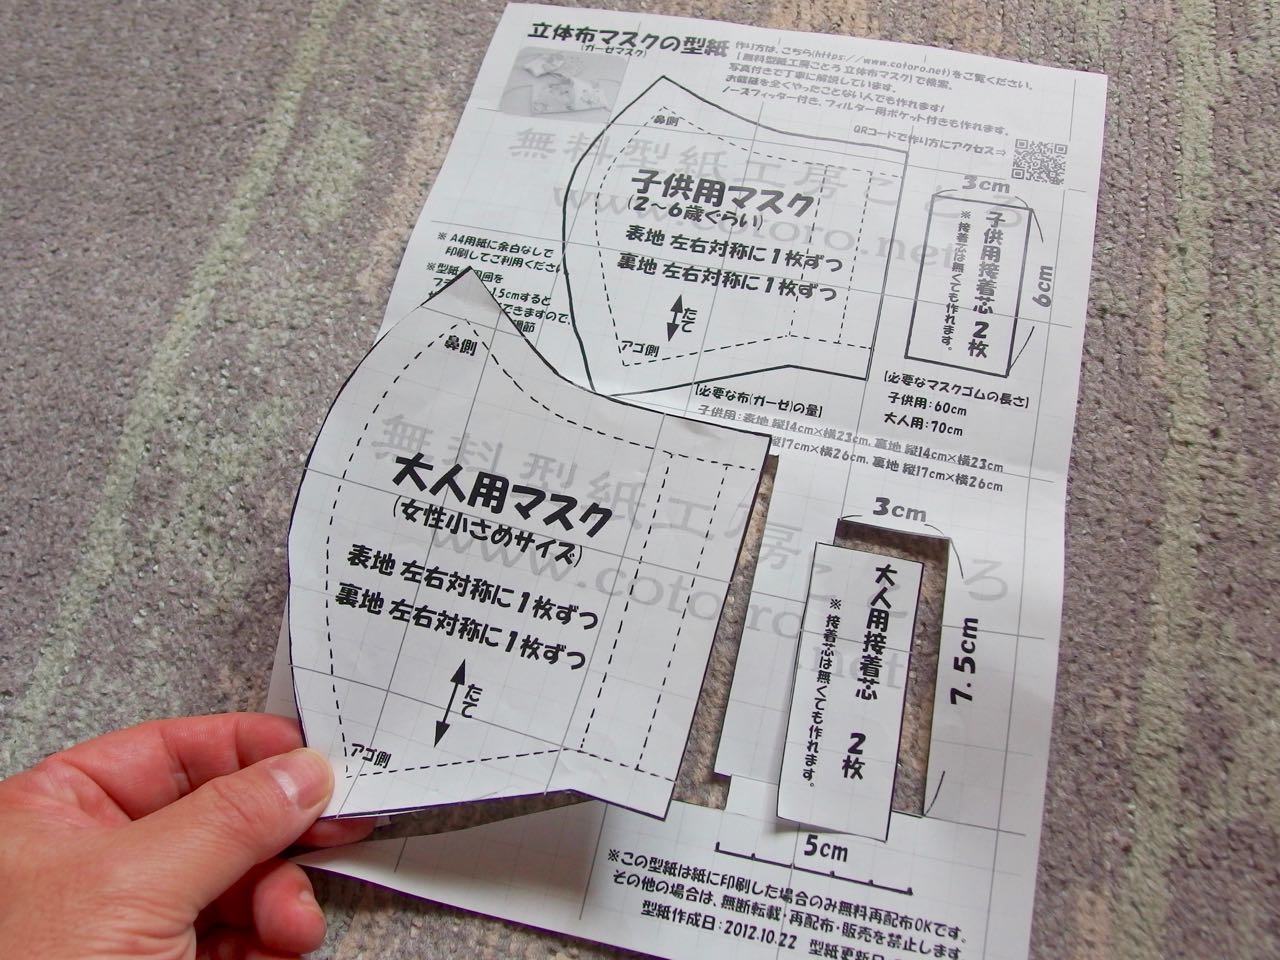 立体布マスクの型紙
(ガーゼマスク)
作り方は、こちら(https://www.cotoro.net)をご覧ください。
【無料型紙工房ことろ 立体布マスク】で検索。
写真付きで丁寧に解説しています。
お裁縫を全くやったことない人でも作れます!
ノーズフィッター付き、フィルター用ポケット付きも作れます。
QRコードで作り方にアクセス⇒
無料型紙工房ことろ
www.cotoro.net
鼻側
子供用マスク
(2〜6歳ぐらい)
表地 左右対称に1枚ずつ
裏地 左右対称に1枚ずつ
たて
アゴ側
3cm
子供用接着芯 2枚
※接着芯は無くても作れます。
6cm
※ A4用紙に余白なしで
印刷してご利用ください
※型紙
囲を
1.5cmすると
できますので、
調節
【必要なマスクゴムの長さ】
子供用:60cm
大人用:70cm
【必要な布(ガーゼ)の量】
子供用:表地 縦14cm×横23cm, 裏地 縦14cm×横23cm
縦17cm×横26cm, 裏地 縦17cm×横26cm
鼻側
無料型紙工房ことろ
www.cotoro.net
大人用マスク
(女性小さめサイズ)
表地 左右対称に1枚ずつ
裏地 左右対称に1枚ずつ
たて
アゴ側
3cm
大人用接着芯 2枚
※接着芯は無くても作れます。
7.5cm
5cm
※この型紙は紙に印刷した場合のみ無料再配布OKです。
その他の場合は、無断転載・再配布・販売を禁止します
型紙作成日:2012.10.22 型紙更新日